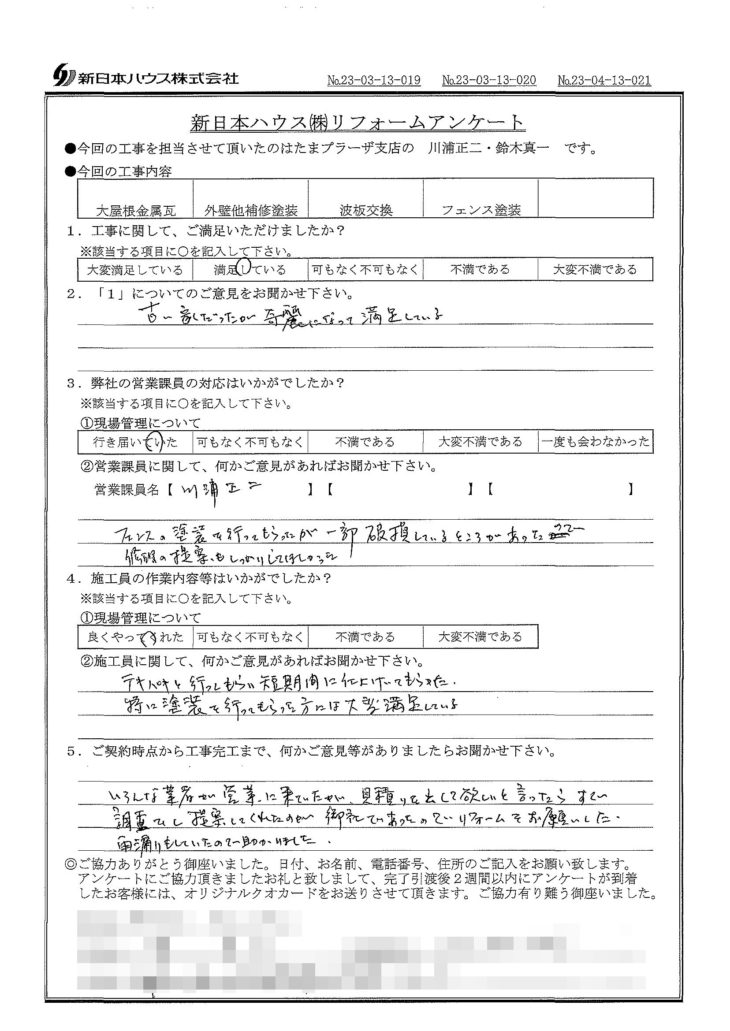 新日本ハウス株式会社 №23-03-13-019 №23-03-13-020 №23-04-13-021
新日本ハウス㈱リフォームアンケート
●今回の工事を担当させて頂いたのはたまプラーザ支店の 川浦正二・鈴木真一 です。
●今回の工事内容
大屋根金属瓦 外壁他補修塗装 波板交換 フェンス塗装
1．工事に関して、ご満足いただけましたか？
※該当する項目に○を記入して下さい。
大変満足している 満足している 可もなく不可もなく 不満である 大変不満である
2．「1」についてのご意見をお聞かせ下さい。
古い家だったが奇麗になって満足している
3．弊社の営業課員の対応はいかがでしたか？
※該当する項目に○を記入して下さい。
①現場管理について
行き届いていた 可もなく不可もなく 不満である 大変不満である 一度も会わなかった
②営業課員に関して、何かご意見があればお聞かせ下さい。
営業課員名【 川浦正二 】【 】【 】
フェンスの塗装を行ってもらったが一部破損しているところがあった
修理の提案もしっかりしてほしかった
4．施工員の作業内容等はいかがでしたか？
※該当する項目に○を記入して下さい。
①現場管理について
良くやってくれた 可もなく不可もなく 不満である 大変不満である
②施工員に関して、何かご意見があればお聞かせ下さい。
テキパキと行ってもらい短期間に仕上げてもらえた.
特に塗装を行ってもらった方には大変満足している
5．ご契約時点から工事完工まで、何かご意見等がありましたらお聞かせ下さい。
いろんな業者が営業に来ていたが、見積りを出して欲しいと言ったらすぐに
調査し提案してくれたのが御社であったのでリフォームをお願いした.
雨漏りもしていたので助かりました.
◎ご協力ありがとう御座いました。日付、お名前、電話番号、住所のご記入をお願い致します。
アンケートにご協力頂きましたお礼と致しまして、完了引渡後2週間以内にアンケートが到着
したお客様には、オリジナルクオカードをお送りさせて頂きます。ご協力有り難う御座いました。